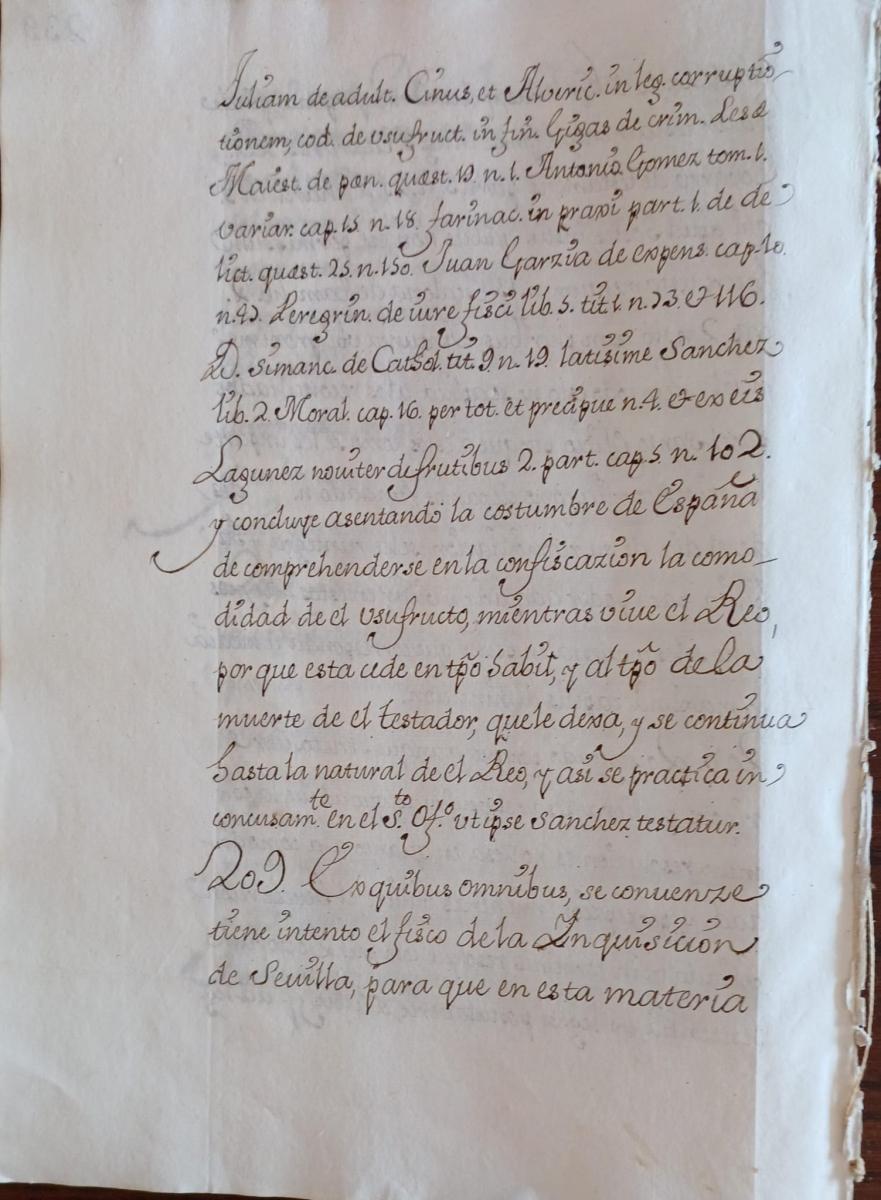 Iuliam de adult. Cinus, et Alveric. in leg. corruptio-
tionem, cod. de vsufruct. in fin. Gigas de crim. Lesæ
Maiest. de pæn. quæst. 19. n. 1. Antonio Gomez tom. 1.
variar. cap. 15. n. 18. farinac. in praxi part. 1. de de
lict. quæst. 25. n. 150. Juan Garzia de expens. cap. 10.
n. 42. Peregrin. de iure fisci lib. 5. tit. 1. n. 73. & 116.
D. Simanc. de Cathol. tit. 9. n. 19. latisime Sanchez
lib. 2. Moral. cap. 16. per tot. et precipue n. 4. & ex eis
Lagunez noviter de frutibus 2. part. cap. 5. n. 102.
y concluye asentando la costumbre de España
de comprehenderse en la confiscazion la como-
didad de el vsufructo, mientras viue el Reo,
porque esta cede en tpõ habil, y al tpõ de la
muerte de el testador, que le dexa, y se continua
hasta la natural de el Reo, y asi se practica in
concusam.te en el S.to Of.o vt ipse Sanchez testatur.
209. Ex quibus omnibus, se conuenze
tiene intento el fisco de la Inquisicion
de Seuilla, para que en esta materia